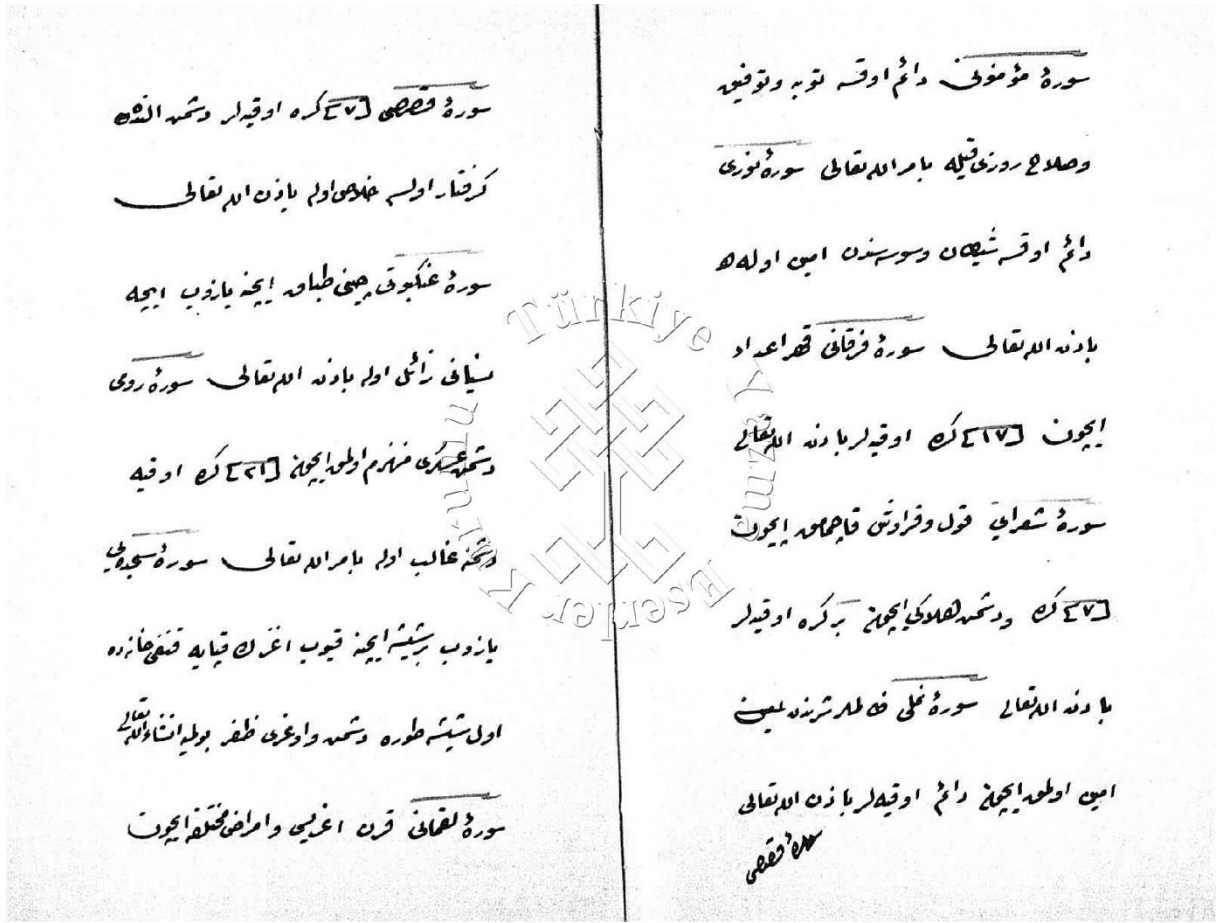 سورهٔ مؤمنونى دائم اوقسه توبه وتوفيق
وصلاح روزى قيله بامر الله تعالى سورهٔ نورى
دائم اوقسه شيطان وسوسه سندن امين اوله
باذن الله تعالى سورهٔ فرقانى قهر اعدا
ايچون [١٧] كره اوقيه لر باذن الله تعالى
سورهٔ شعرايى قول وقراوش قاچمامق ايچون
[٧] كره ودشمن هلاكى ايچون بر كره اوقيه لر
باذن الله تعالى سورهٔ نملى ظالملر شرندن
امين اولمق ايچون دائم اوقيه لر باذن الله تعالى
سورهٔ قصصى
سورهٔ قصصى [٧] كره اوقيه لر دشمن النده
كرفتار اولسه خلاص اوله باذن الله تعالى
سورهٔ عنكبوتى چينى طباق ايچنه يازوب ايچه
نسيانى زائل اوله باذن الله تعالى سورهٔ رومى
دشمن عسكرى منهزم اولمق ايچون [٢١] كره اوقيه
دشمنه غالب اوله بامر الله تعالى سورهٔ سجده يى
يازوب بر شيشه ايچنه قيوب اغزك قپايه قنغى خانه ده
اول شيشه طوره دشمن واوغرى ظفر بولميه انشاء الله تعالى
سورهٔ لقمانى قرن اغريسى وامراض مختلفه ايچون
Türkiye Yazma Eserler Kurumu